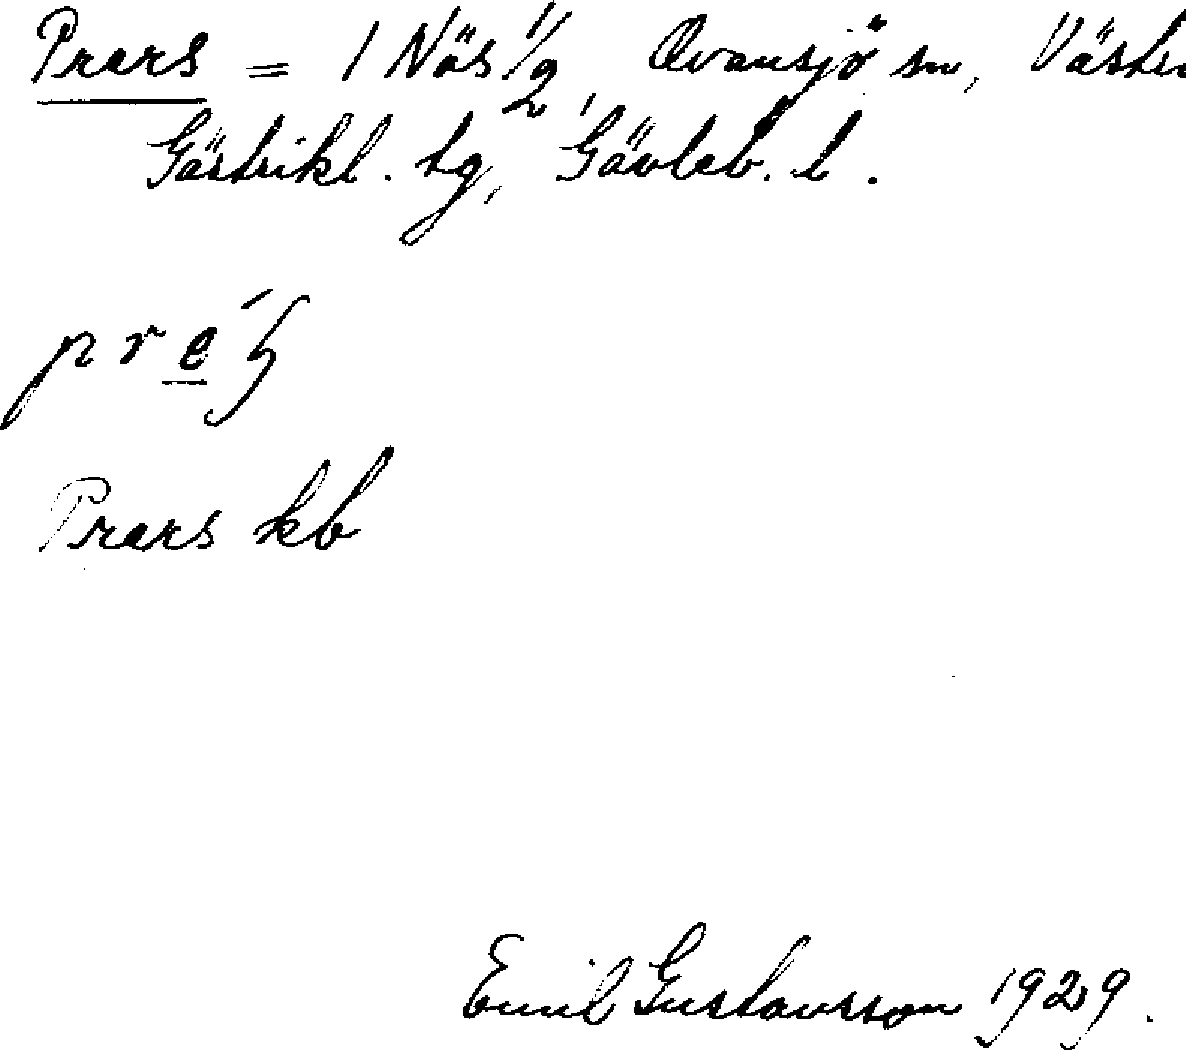 Prers = 1 Näs 1/2, Ovansjö sn, Västr
Gästrikl. tg, Gävleb. l.
Prers kb
Emil Gustavsson 1929.